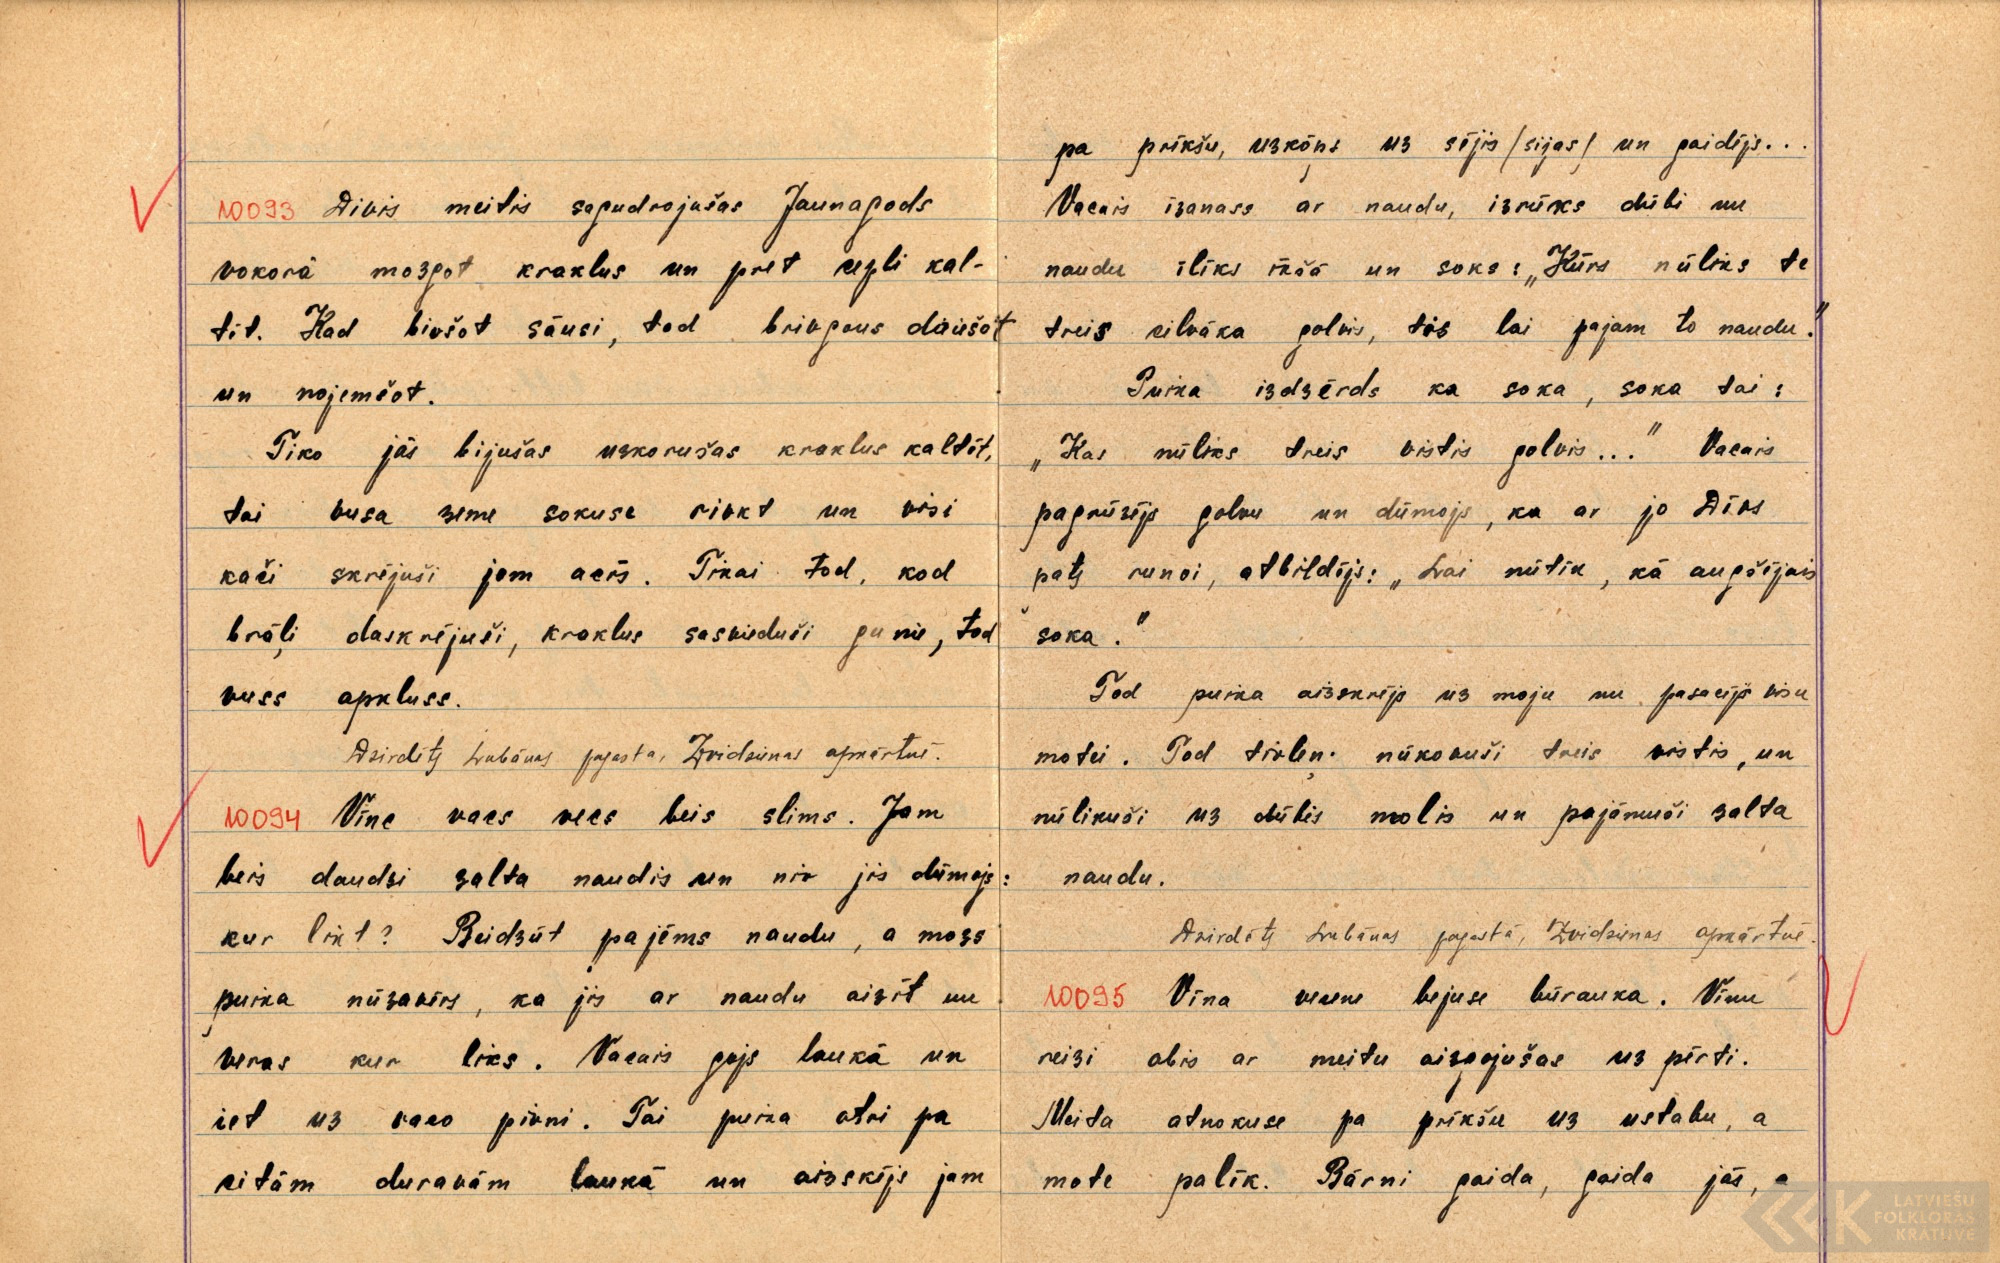 10093 Divis meitis sagudrojušas Jaunagods
vokorā mozgot kraklus un pret cepli kal-
tīt. Kad bivšot sāusi, tod brivgous dāušot
un nojemšot.
Tiko jās bijušas uskorušas kraklus kaltēt,
tai vusa zeme sokuse rivkt un visi
kači skrējuši jom acīs. Tikai tod, kod
brāļi daskrējuši, kraklus sasvieduši gunie, tod
vuss apkluss.
Dzirdēts Lubānas pagasta, Zvidzienas apkārtnē.
10094 Vīnc vacs vecs beis slims. Jam
beis daudzi zalta naudis un niv jis dūmojs:
kur likt? Beidzūt pajēms naudu, a mozs
puika nūzavērs, ka jis ar naudu aizīt un
veras kur liks. Vacais gojs laukā un
iet uz vaco pivni. Tai puika otri pa
citām duravām laukā un aizskējs jam
pa prīkšu, uzkōps uz sījis /sijas/ un gaidējs...
Vacais īzanass ar naudu, izrūks dūbi un
naudu īlīks īkšā un soks: „Kūrs nūliks te
treis cilvāka golvis, tis lai pajam to naudu."
Puika izdzērds ka soka, soka tai:
„Kas nūliks treis vistis golvis..." Vacais
pagrūzējs golvu un dūmojs, ka ar jo Dīvs
pats runoi, atbildējs: „Lai nūtīk, kā augšējais
soka."
Tod puika aizskrējs uz moju un pasacējs visu
motei. Tod tivleņ nūkovuši treis vistis, un
nūlikuši uz dūbis molis un pajāmuši zalta
naudu.
Dzirdēts Lubānas pagastā, Zvidzienas apkārtnē.
10095 Vīna vecene bejuse būrauka. Vīnu
reizi abis ar meitu aizgojušas uz pīrti.
Meita atnokuse pa prīkšu uz ustabu, a
mote palīk. Bārni gaida, gaida jās, a
LATVIEŠU
FOLKLORAS
KRĀTUVE